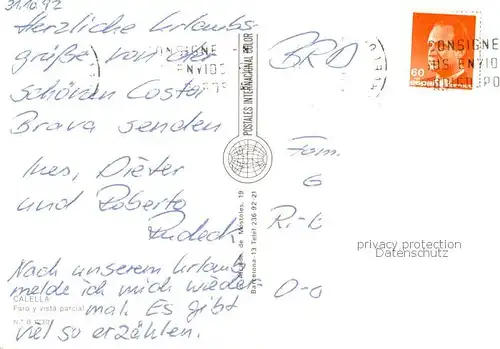 31.10.92
Herzliche Urlaubs-
grüße von der
schönen Costa
Brava senden
Ines, Dieter
und Roberto
Nach unserem Urlaub
melde ich mich wieder
mal. Es gibt
viel so erzählen.
CALELLA
Faro y vista parcial
POSTALES INTERNACIONAL COLOR
de Mostoles, 19
Barcelona-13 Telef. 236 92 21
BRD
Fam.
G
D-
60
españa
CONSIGNE
SUS ENVIOS
privacy protection
Datenschutz